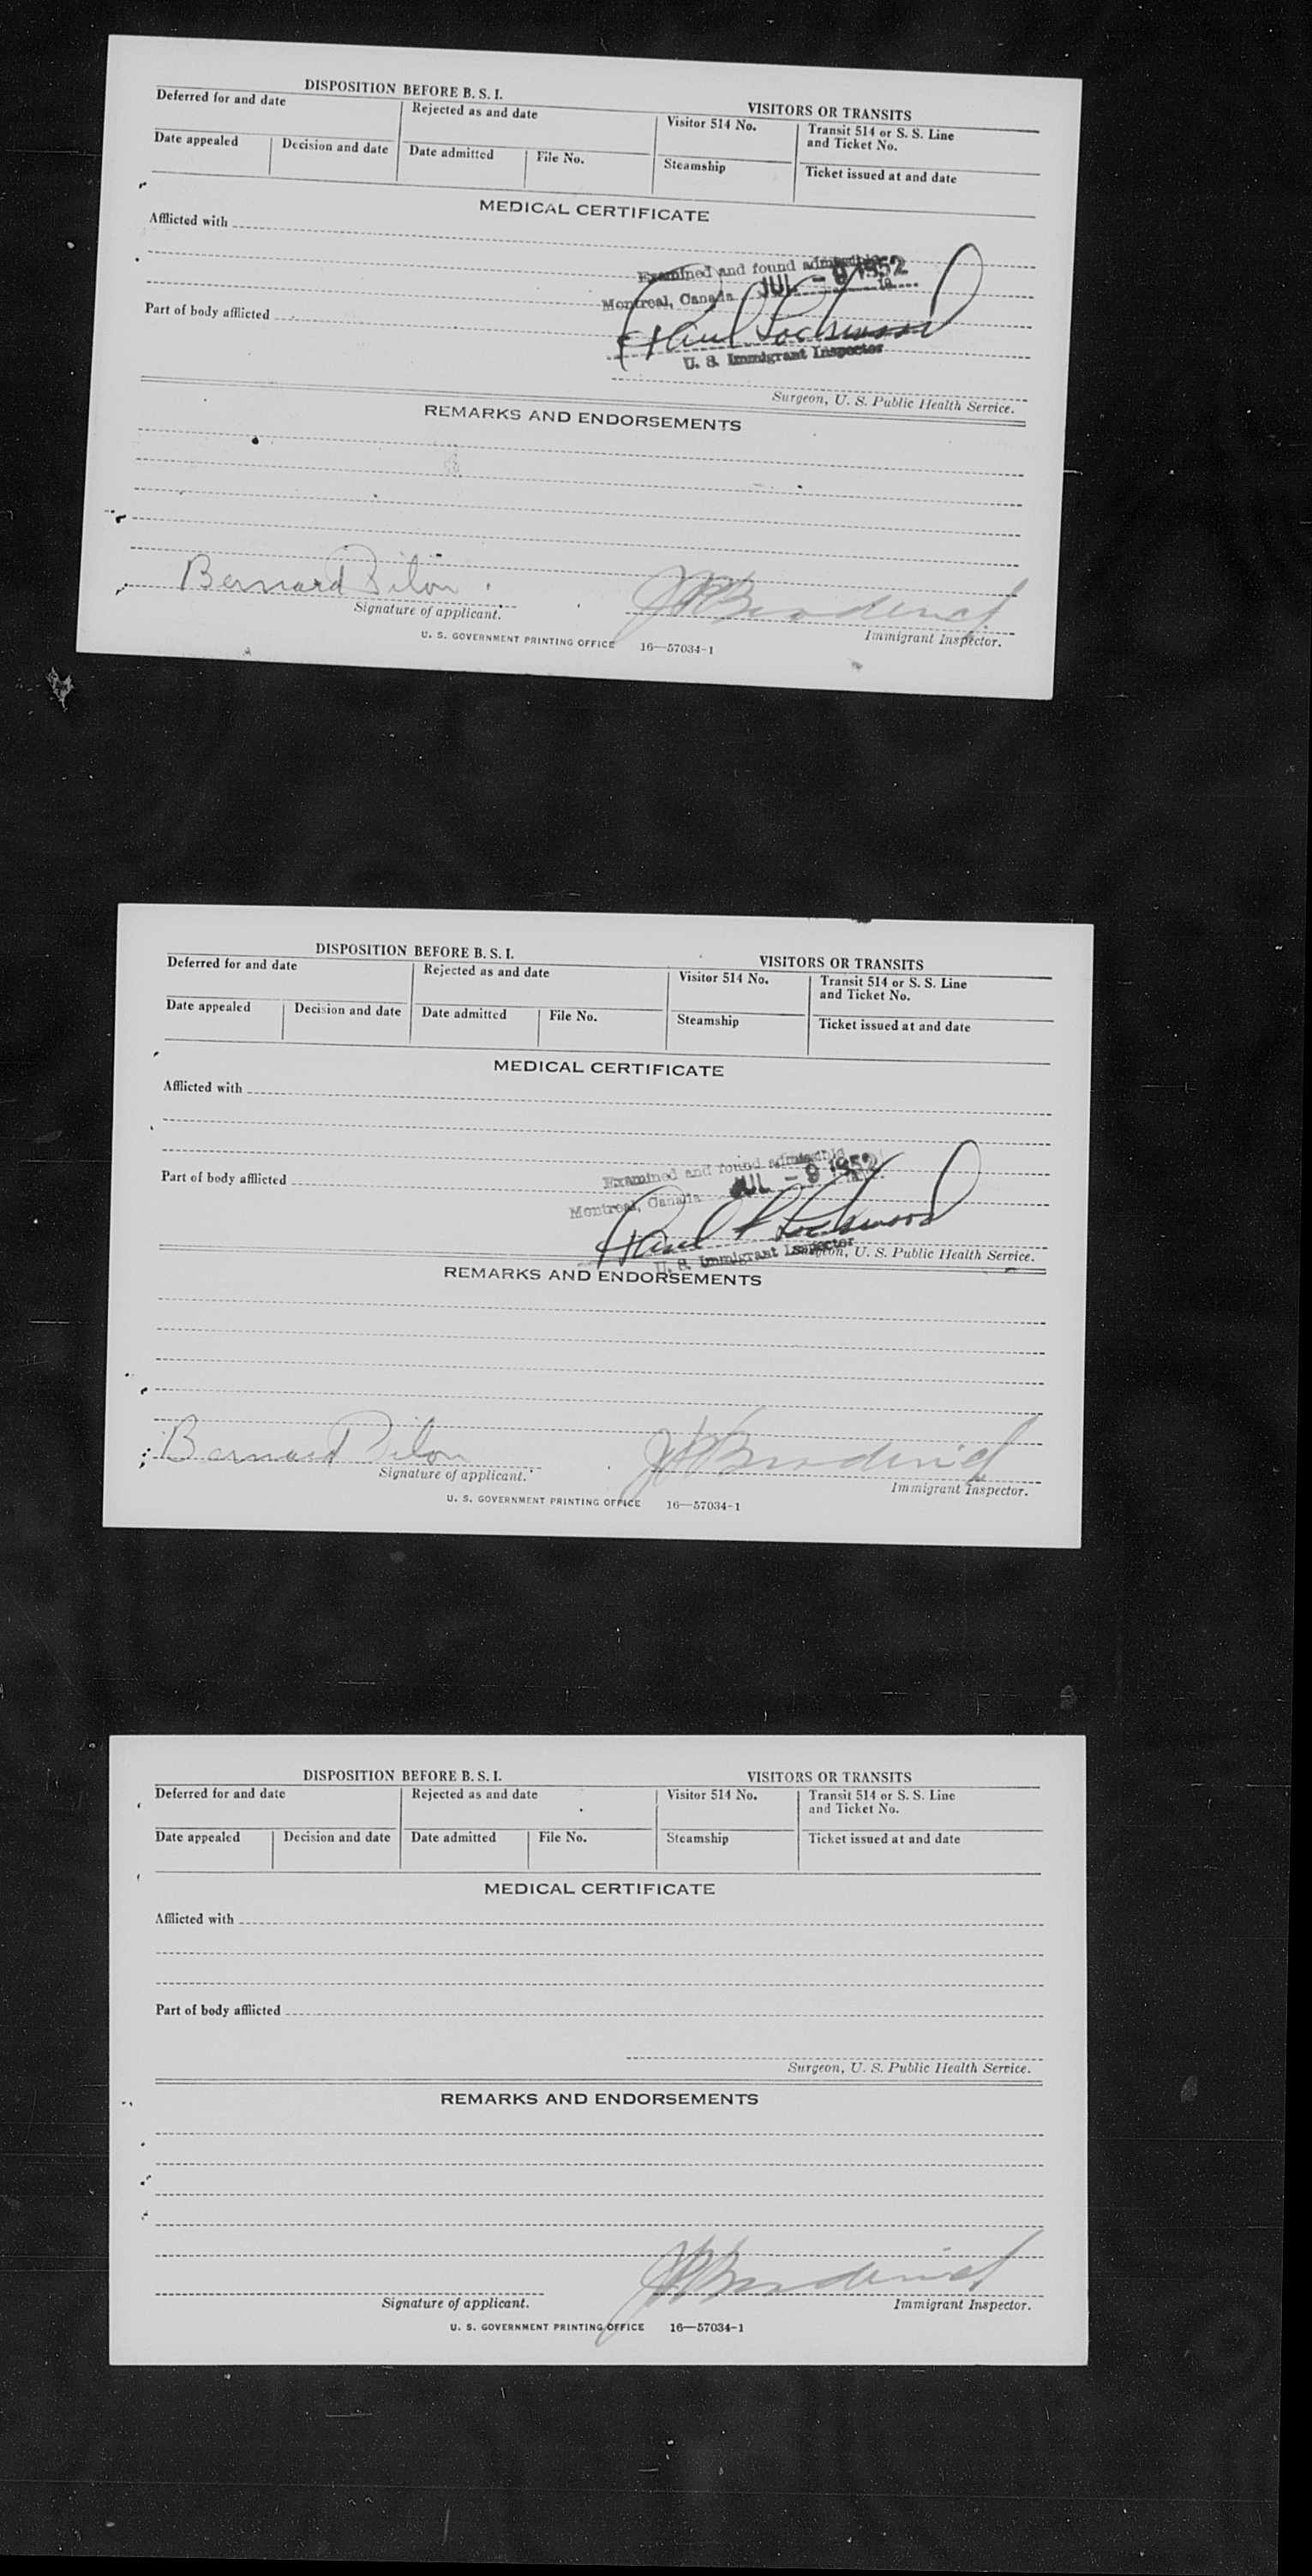 DISPOSITION BEFORE B. S. I.
VISITORS OR TRANSITS
Deferred for and date
Rejected as and date
Visitor 514 No.
Transit 514 or S. S. Line
and Ticket No.
Date appealed
Decision and date
Date admitted
File No.
Steamship
Ticket issued at and date
MEDICAL CERTIFICATE
Afflicted with
Examined and found admissible
Montreal, Canada JUL - 9 1952
Part of body afflicted
Paul Lockwood
U. S. Immigrant Inspector
Surgeon, U. S. Public Health Service.
REMARKS AND ENDORSEMENTS
Bernard Pilon
Signature of applicant.
Immigrant Inspector.
U. S. GOVERNMENT PRINTING OFFICE 16—57034-1
DISPOSITION BEFORE B. S. I.
VISITORS OR TRANSITS
Deferred for and date
Rejected as and date
Visitor 514 No.
Transit 514 or S. S. Line
and Ticket No.
Date appealed
Decision and date
Date admitted
File No.
Steamship
Ticket issued at and date
MEDICAL CERTIFICATE
Afflicted with
Examined and found admissible
Part of body afflicted
Montreal, Canada JUL - 9 1952
Paul Lockwood
U. S. Immigrant Inspector
Surgeon, U. S. Public Health Service.
REMARKS AND ENDORSEMENTS
Bernard Pilon
Signature of applicant.
Immigrant Inspector.
U. S. GOVERNMENT PRINTING OFFICE 16—57034-1
DISPOSITION BEFORE B. S. I.
VISITORS OR TRANSITS
Deferred for and date
Rejected as and date
Visitor 514 No.
Transit 514 or S. S. Line
and Ticket No.
Date appealed
Decision and date
Date admitted
File No.
Steamship
Ticket issued at and date
MEDICAL CERTIFICATE
Afflicted with
Part of body afflicted
Surgeon, U. S. Public Health Service.
REMARKS AND ENDORSEMENTS
Signature of applicant.
Immigrant Inspector.
U. S. GOVERNMENT PRINTING OFFICE 16—57034-1